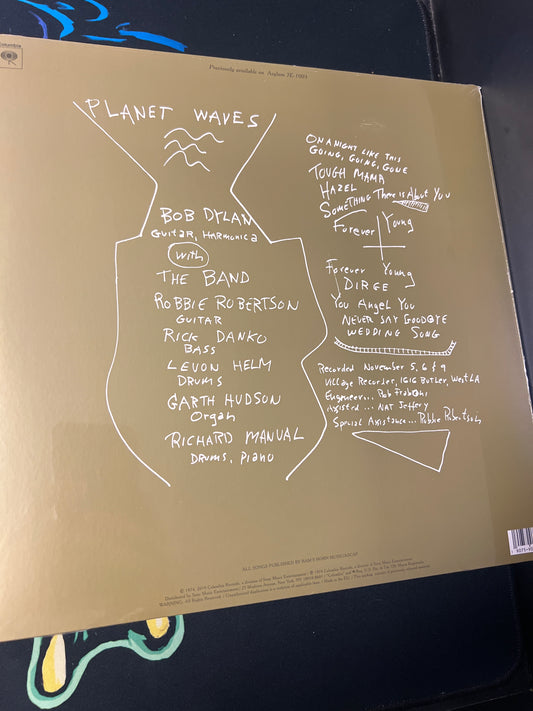 Columbia
Previously available on Asylum 7E-1003
PLANET WAVES
BOB DYLAN
GUITAR, HARMONICA
With
THE BAND
ROBBIE ROBERTSON
GUITAR
RICK DANKO
BASS
LEVON HELM
DRUMS
GARTH HUDSON
Organ
RICHARD MANUAL
DRUMS, PIANO
ON A NIGHT LIKE THIS
GOING, GOING, GONE
TOUGH MAMA
HAZEL
SOMETHING There is About You
Forever Young
Forever Young
DIRGE
You Angel You
NEVER SAY GOODBYE
WEDDING SONG
Recorded November 5, 6 & 9
Village Recorder, 1616 Butler, West LA
Engineer... Rob Fraboni
Assisted... NAT Jeffery
Special Assistance... Robbie Robertson
ALL SONGS PUBLISHED BY RAM'S HORN MUSIC/ASCAP